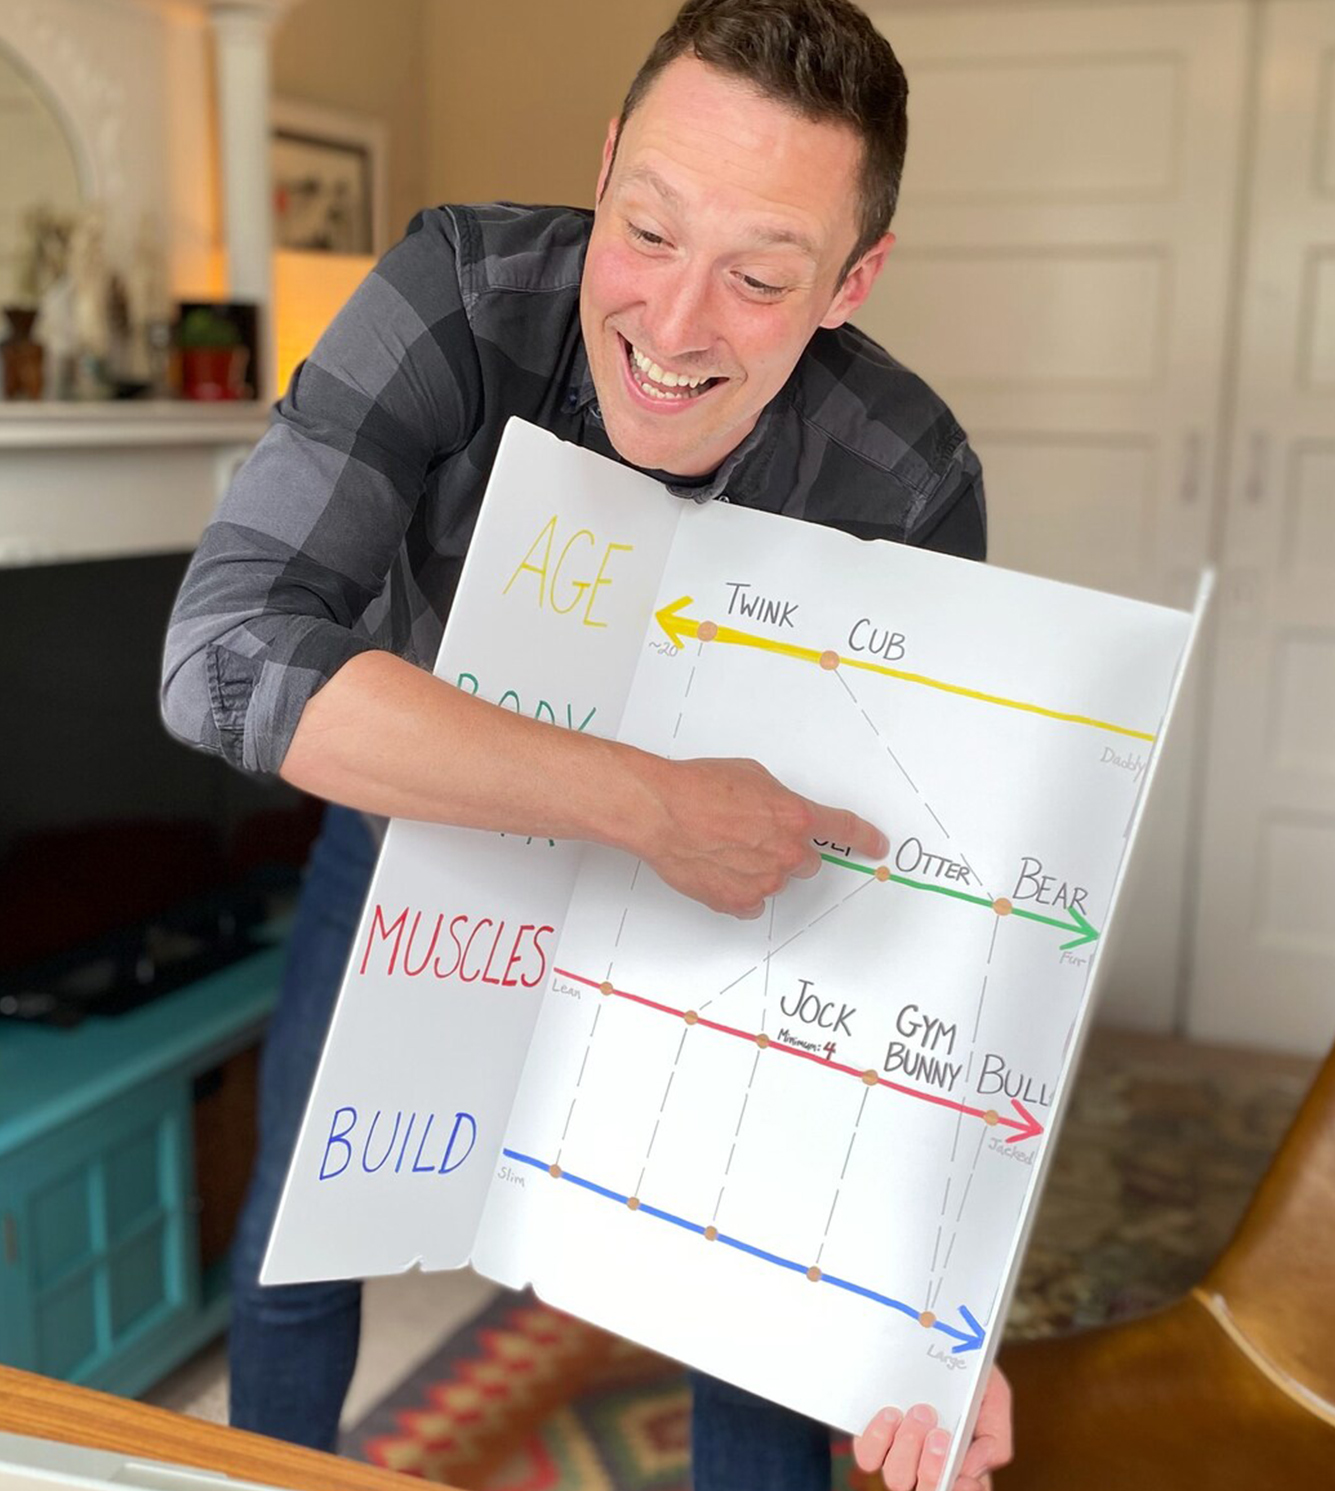 AGE
TWINK
CUB
~20
Daddy
BODY
OTTER
BEAR
Fur
MUSCLES
Lean
JOCK
Minimum: 4
GYM
BUNNY
BULL
Jacked
BUILD
Slim
Large